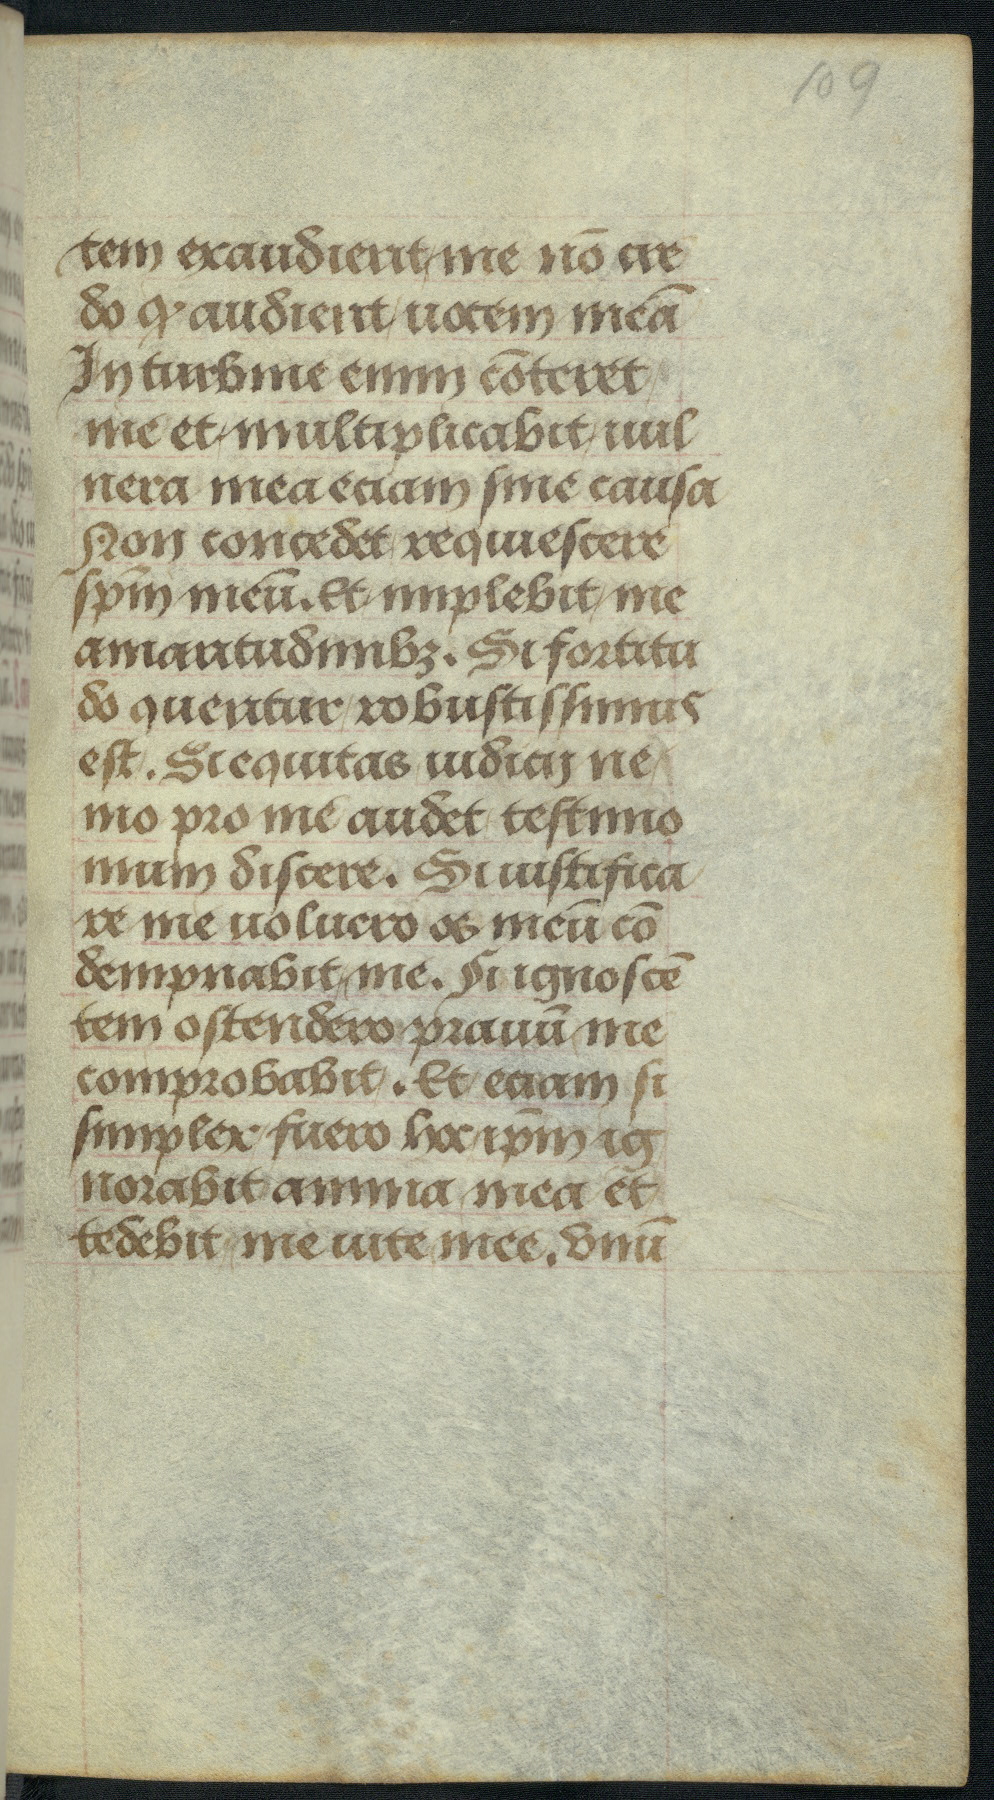 109
tem exaudierit me nō cre
do qꝫ audierit uocem meā
In turbine enim cōteret
me et multiplicabit uul
nera mea eciam sine causa
Non concedet requiescere
spm̄ meū. Et implebit me
amaritudinibꝫ. Si fortitu
do queritur robustissimus
est. Si equitas iudicij ne
mo pro me audet testimo
nium discere. Si iustifica
re me uoluero os meū cō
dempnabit me. Si ignoscē
tem ostendero prauū me
comprobabit. Et eciam si
simplex fuero hoc ipm̄ ig
norabit anima mea et
tedebit me uite mee. vnū